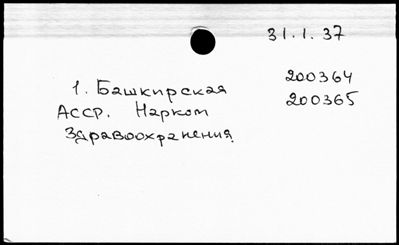 31.1.37
1. Башкирская 200364
АССР. Нарком 200365
Здравоохранения